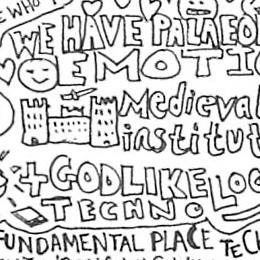 WHO
WE HAVE PALAEO
EMOTI
Medieval
institut
+ GODLIKE LOO
TECHNO
FUNDAMENTAL PLACE TECH